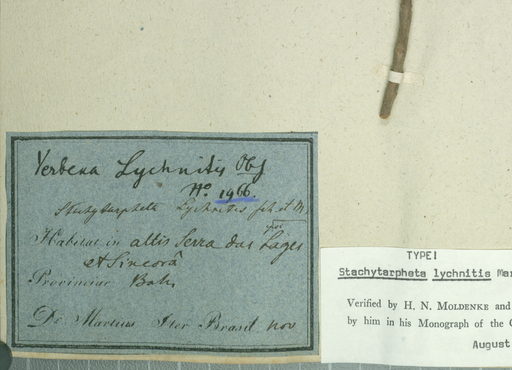 Verbena Lychnitis Obs
No. 1966.
Stachytarpheta Lychnitis
Habitat in altis Serra das Lages
et Sincorá
Provinciae Bah.
De Martius Iter Brasil nov
TYPE!
Stachytarpheta lychnitis Mar
Verified by H. N. MOLDENKE and
by him in his Monograph of the G
August